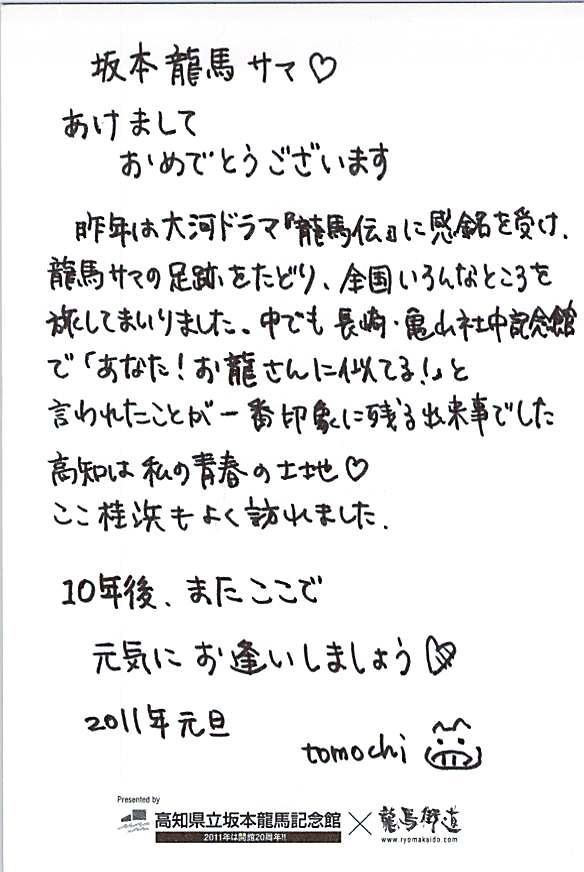 坂本龍馬サマ♡
あけまして
おめでとうございます
昨年は大河ドラマ『龍馬伝』に感銘を受け、
龍馬サマの足跡をたどり、全国いろんなところを
旅してまいりました。中でも長崎・亀山社中記念館
で「あなた!お龍さんに似てる!」と
言われたことが一番印象に残る出来事でした
高知は私の青春の土地♡
ここ桂浜もよく訪れました.
10年後、またここで
元気にお逢いしましょう♡
2011年元旦
tomochi
Presented by
高知県立坂本龍馬記念館 × 龍馬街道
2011年は開館20周年!!
www.ryomakaido.com